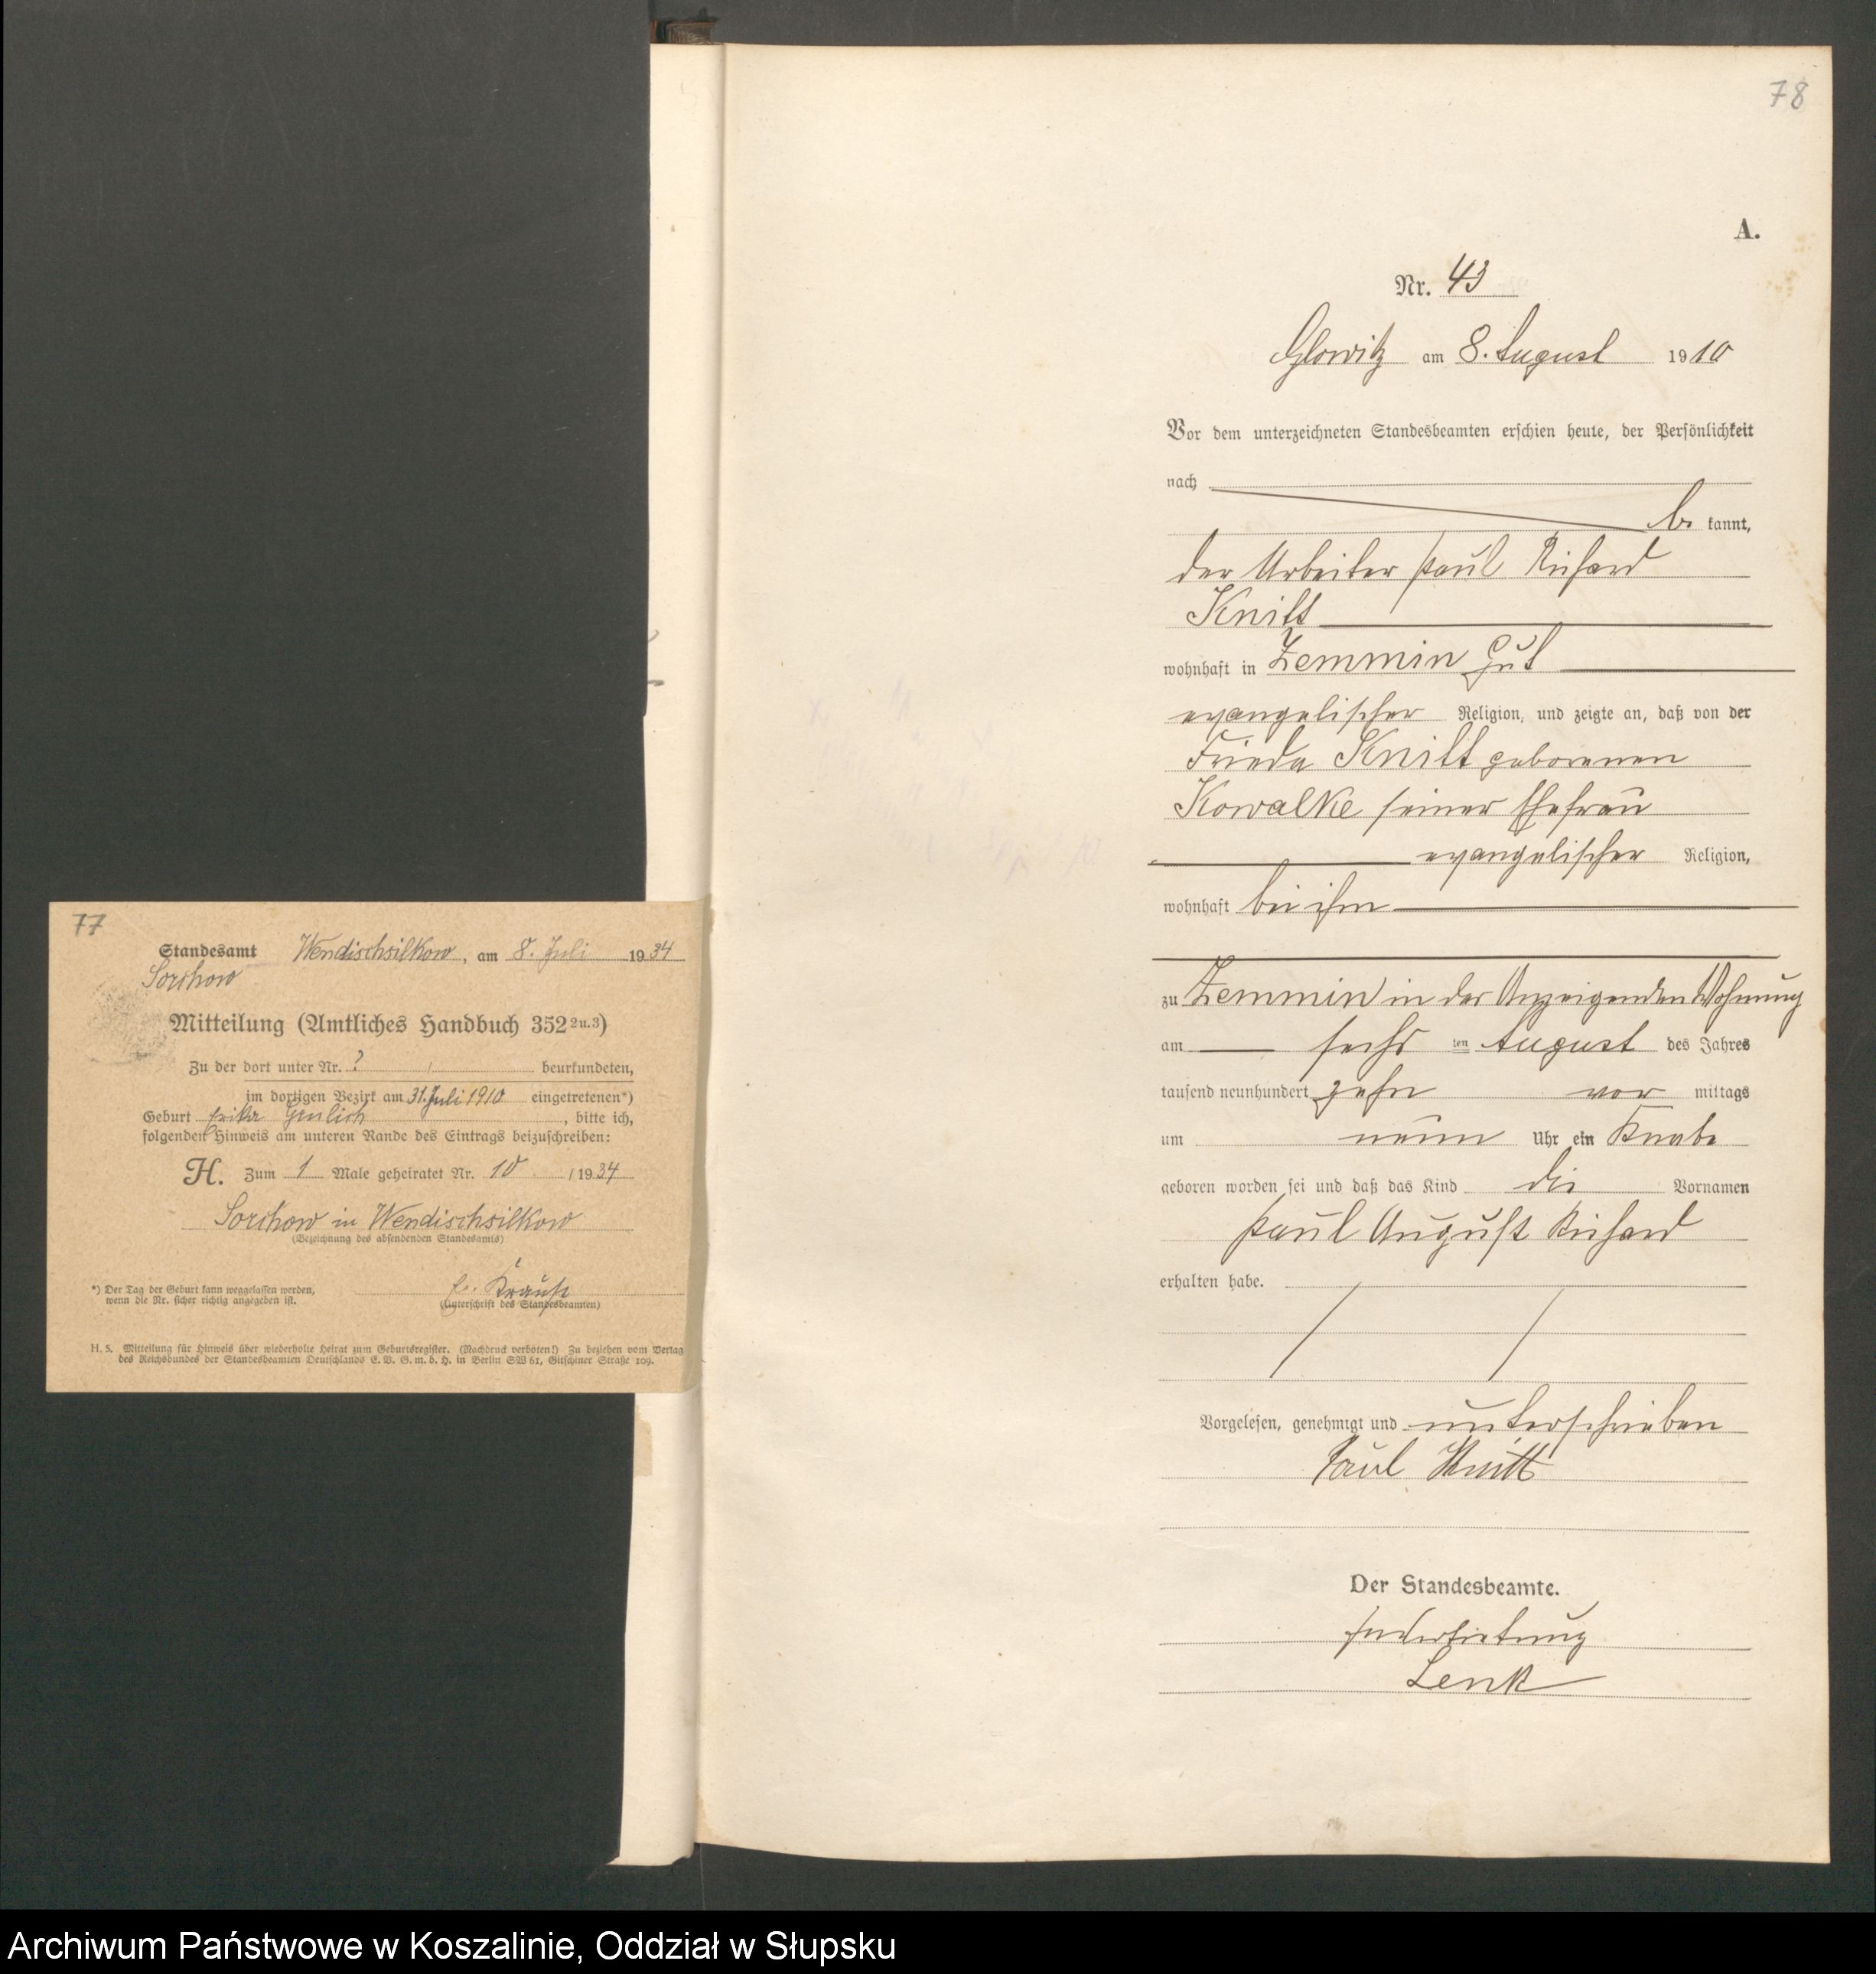 77
Standesamt Wendischsilkow, am 8. Juli 1934
Sorchow
Mitteilung (Amtliches Handbuch 352 2 u. 3)
Zu der dort unter Nr. ? / beurkundeten,
im dortigen Bezirk am 31. Juli 1910 eingetretenen*)
Geburt Erika , bitte ich,
folgenden Hinweis am unteren Rande des Eintrags beizuschreiben:
H. Zum 1 Male geheiratet Nr. 10 / 1934
Sorchow in Wendischsilkow
(Bezeichnung des absendenden Standesamts)
*) Der Tag der Geburt kann weggelassen werden,
wenn die Nr. sicher richtig angegeben ist.
Krause
(Unterschrift des Standesbeamten)
H. 5. Mitteilung für Hinweis über wiederholte Heirat zum Geburtsregister. (Nachdruck verboten!) Zu beziehen vom Verlag
des Reichsbundes der Standesbeamten Deutschlands E. V. G. m. b. H. in Berlin SW 61, Gitschiner Straße 109.
78
A.
Nr. 43
Glowitz am 8. August 1910
Vor dem unterzeichneten Standesbeamten erschien heute, der Persönlichkeit
nach
be kannt,
der Arbeiter Paul Richard
Knitt
wohnhaft in Zemmin Gut
evangelischer Religion, und zeigte an, daß von der
Frieda Knitt geborenen
Kowalke seiner Ehefrau
evangelischer Religion,
wohnhaft bei ihm
zu Zemmin in des Anzeigenden Wohnung
am sechs ten August des Jahres
tausend neunhundert zehn vor mittags
um neun Uhr ein Knabe
geboren worden sei und daß das Kind die Vornamen
Paul August Richard
erhalten habe.
Vorgelesen, genehmigt und unterschrieben
Paul Knitt
Der Standesbeamte.
In Vertretung
Lenk
Archiwum Państwowe w Koszalinie, Oddział w Słupsku